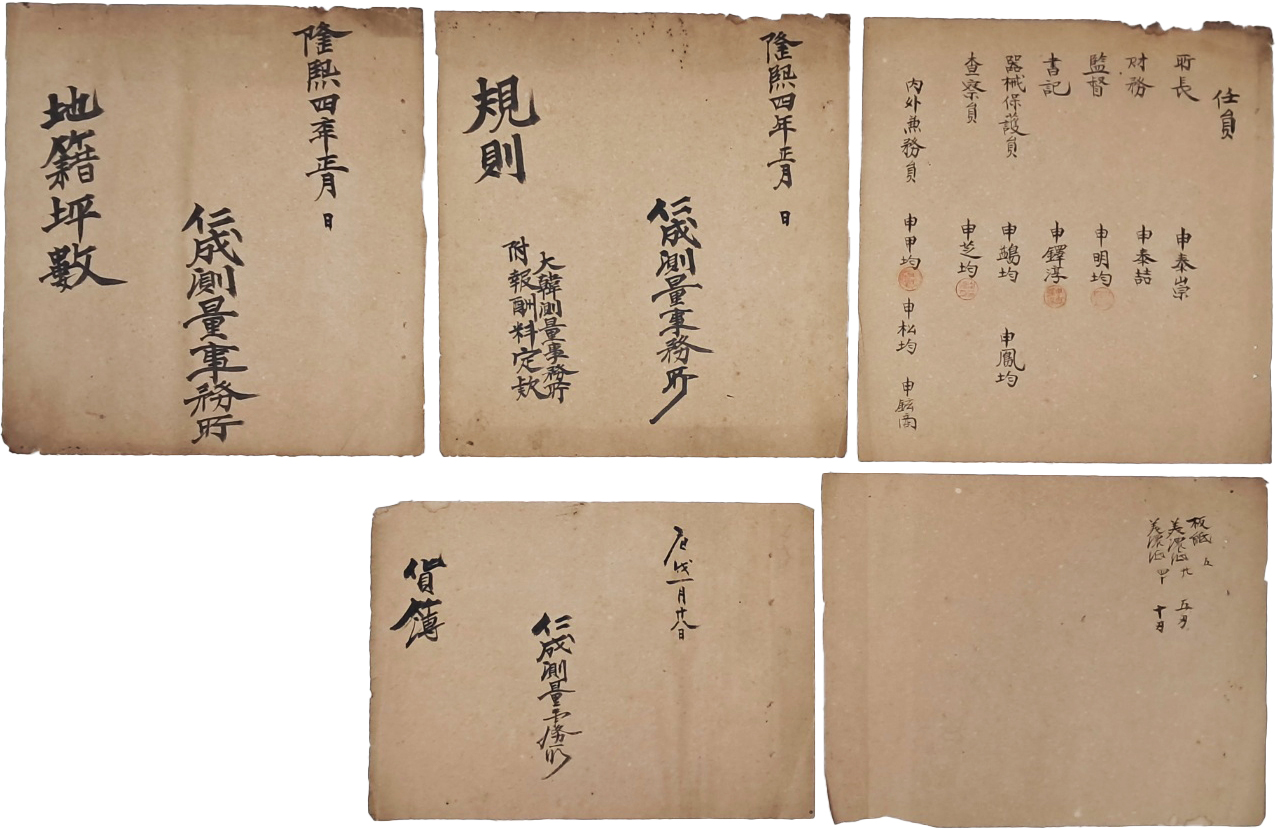 隆熙四年正月 日
仁成測量事務所
地籍坪數
隆熙四年正月 日
仁成測量事務所
規則
大韓測量事務所
附報酬料定款
任員
所長 申泰崇
財務 申泰喆
監督 申明均
書記 申鐸淳
器械保護員 申鷁均 申鳳均
查察員 申芝均
內外兼務員 申甲均 申松均 申鉉商
庚戌一月十八日
仁成測量事務所
貨簿
板紙 五
美濃紙 九 五刀
美濃紙 四十 十刀